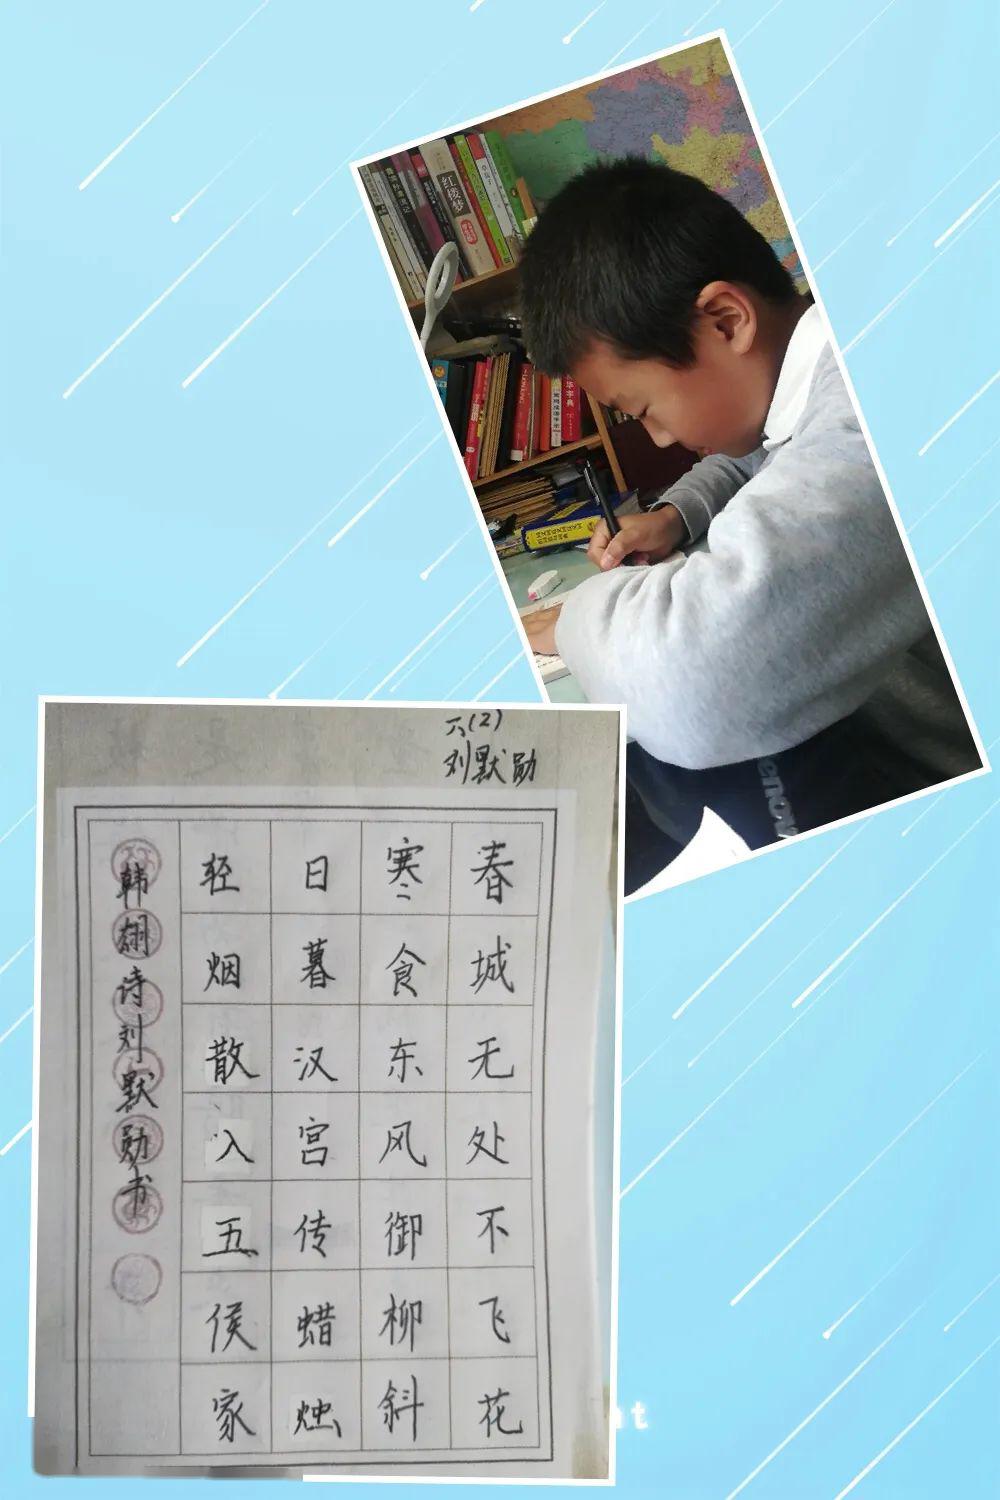 红楼梦
enov
六(2)
刘默勋
春城无处不飞花
寒食东风御柳斜
日暮汉宫传蜡烛
轻烟散入五侯家
韩翃诗刘默勋书